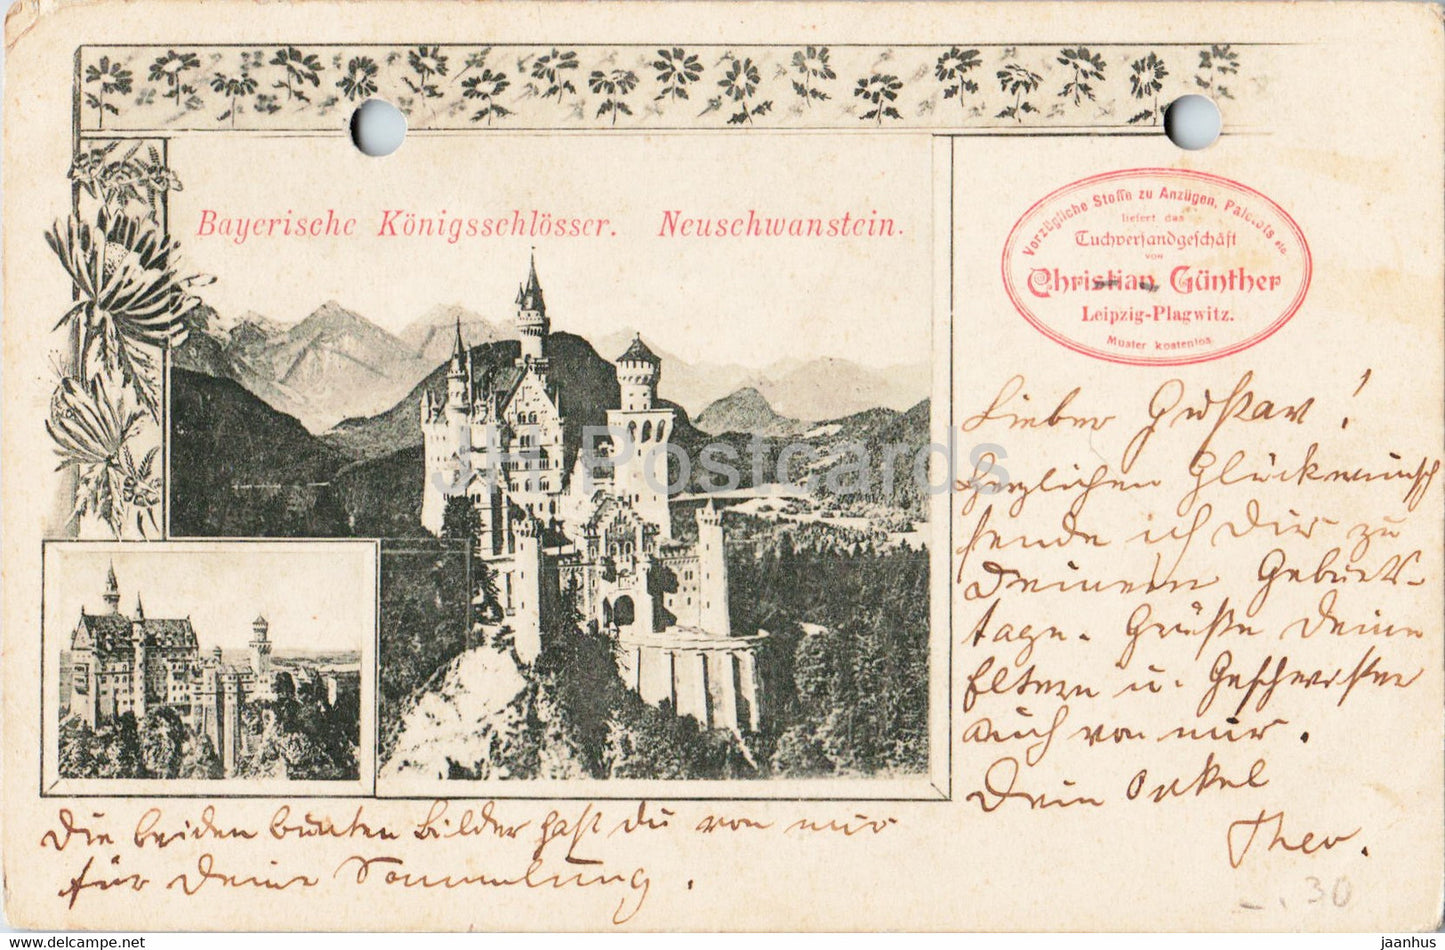 Bayerische Königsschlösser. Neuschwanstein.
Vorzügliche Stoffe zu Anzügen, Paletots etc
liefert das
Tuchversandgeschäft
von
Christian Günther
Leipzig-Plagwitz.
Muster kostenlos
Lieber Gustav!
Herzlichen Glückwunsch
sende ich Dir zu
Deinem Geburts-
tage. Grüße Deine
Eltern u. Geschwister
auch von mir.
Dein Onkel
Theo.
Die beiden bunten Bilder hast du von mir
für Deine Sammlung.
-.30
JH Postcards
www.delcampe.net
jaanhus